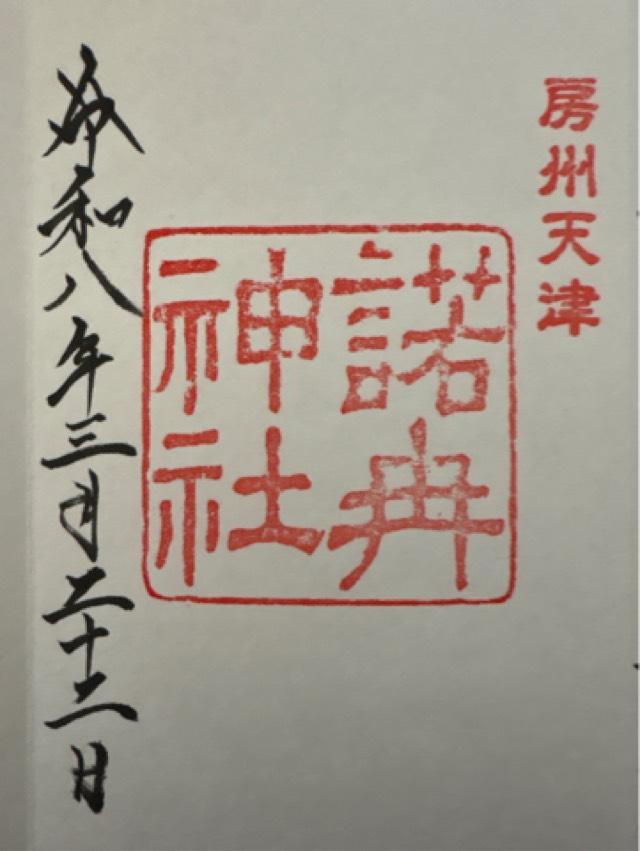 房州天津
諾冉
神社
令和八年三月二十二日